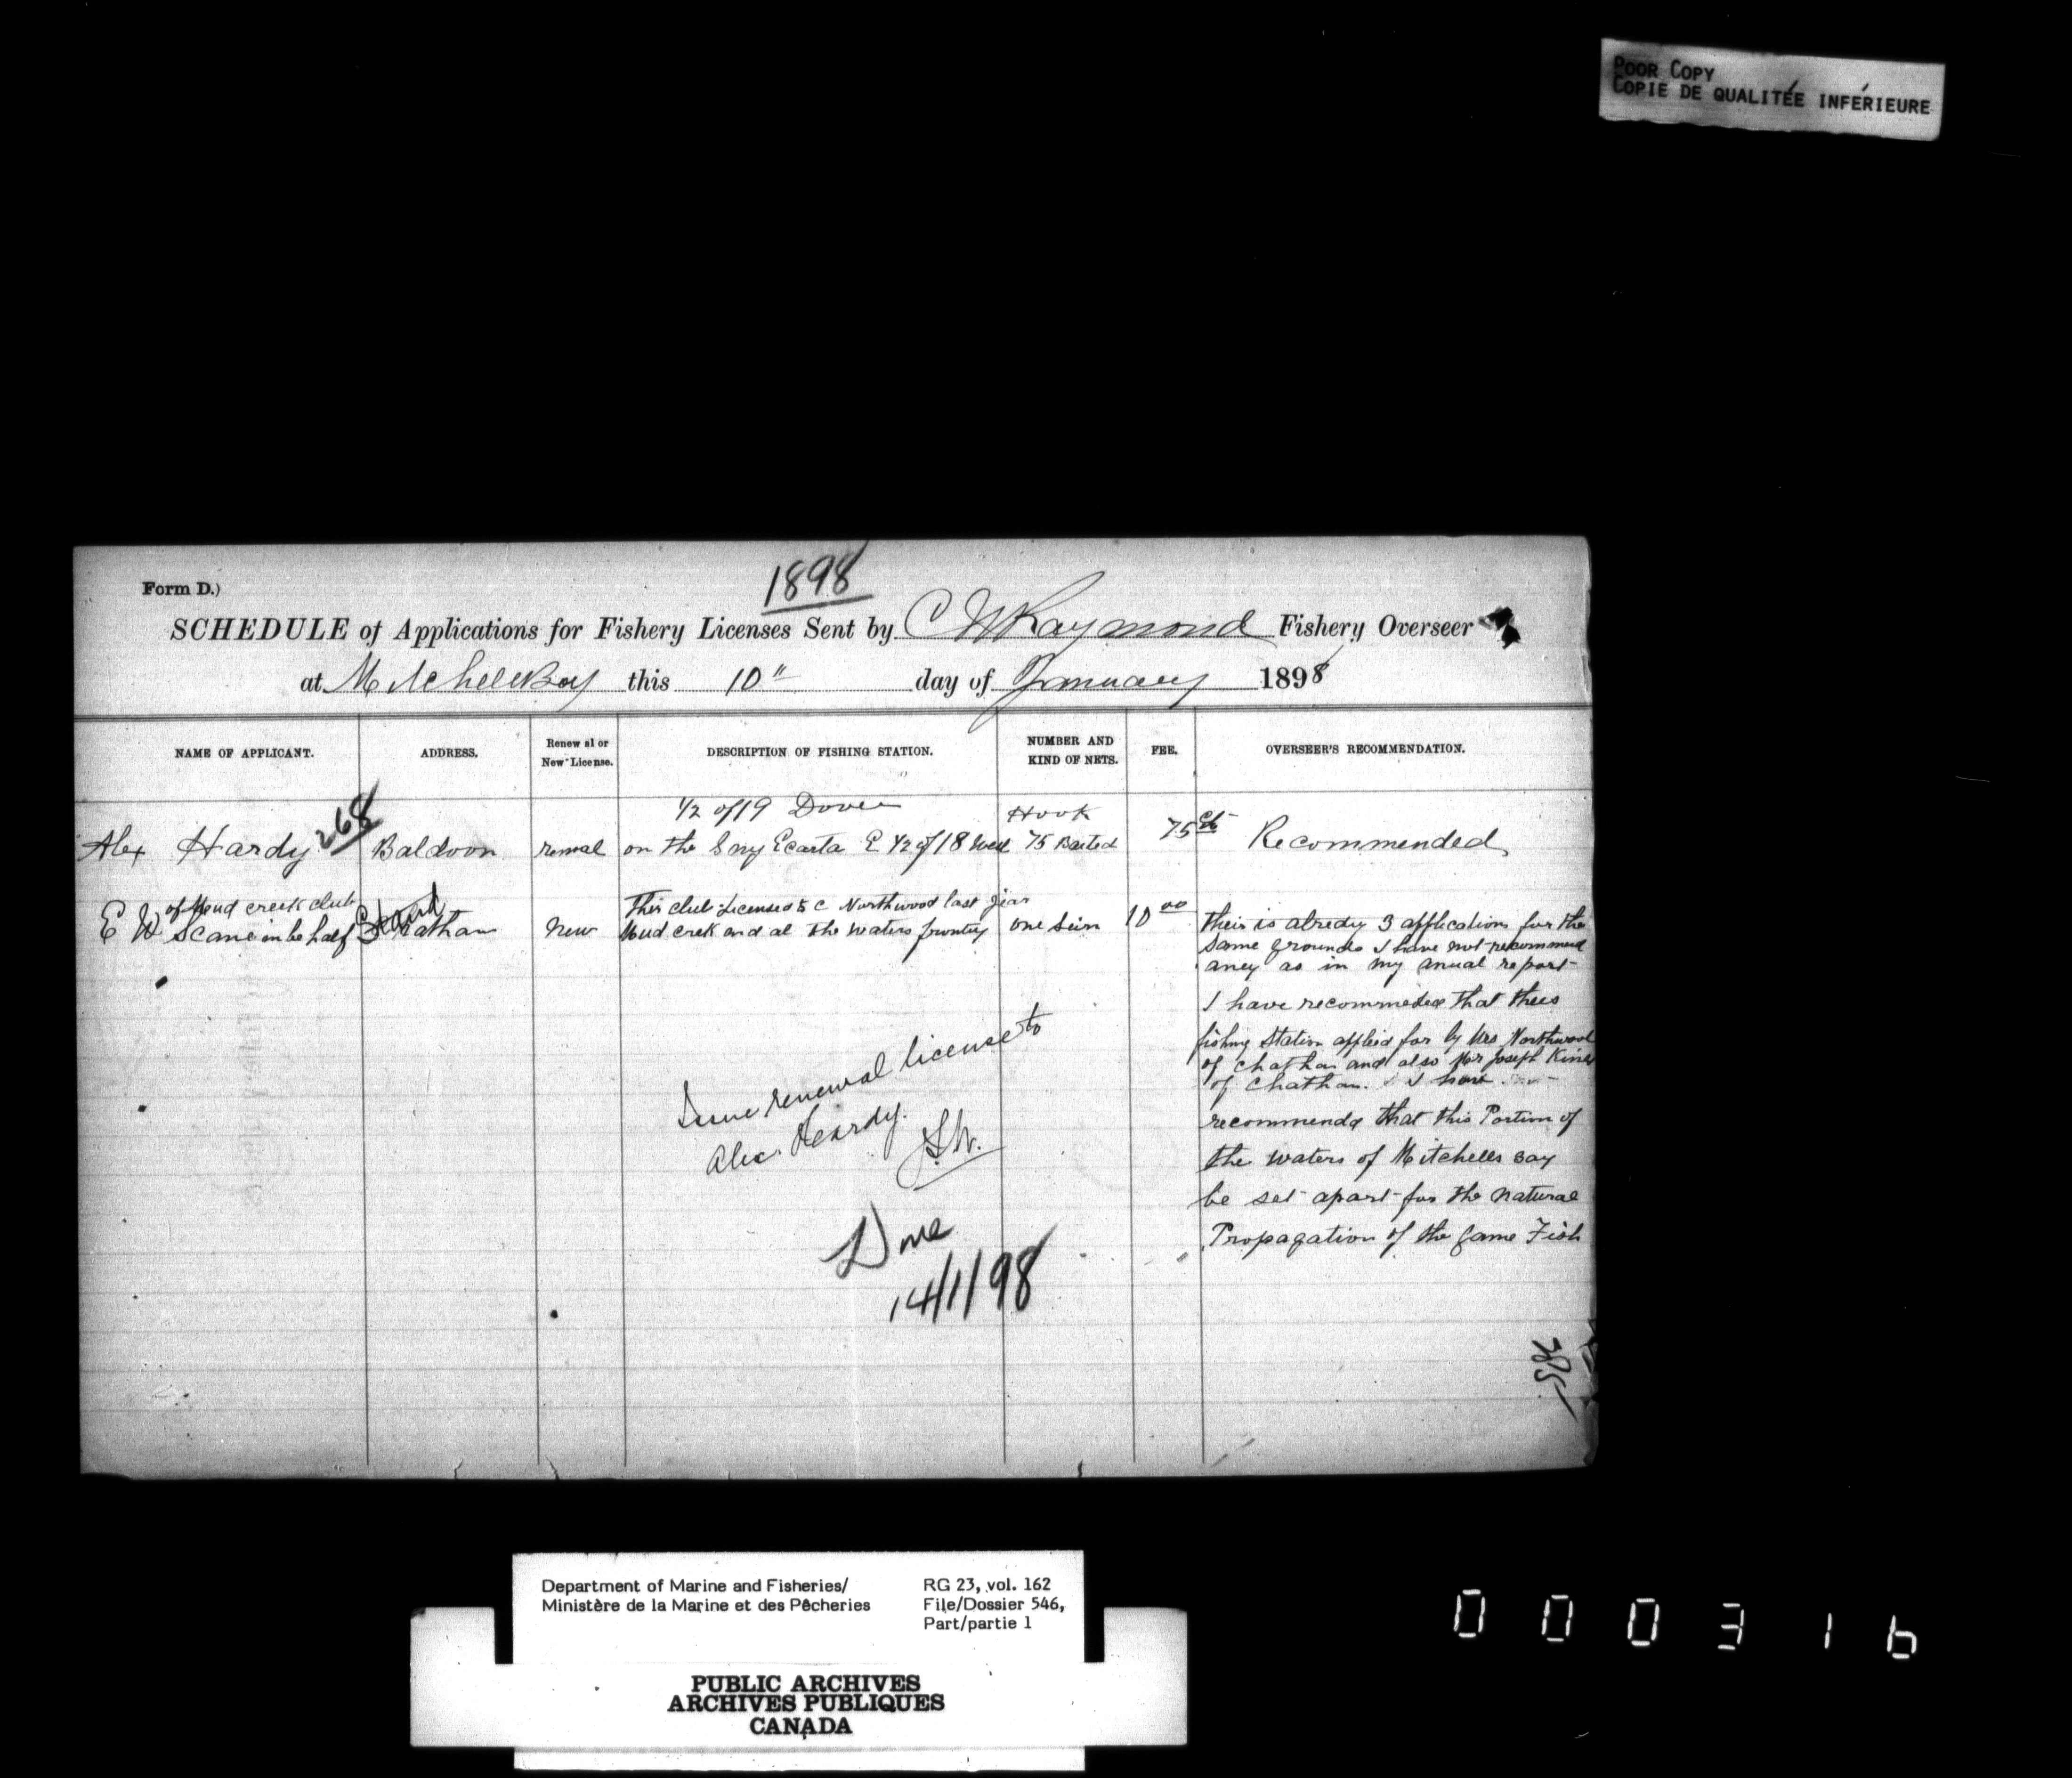 POOR COPY
COPIE DE QUALITÉE INFÉRIEURE
1898
Form D.)
SCHEDULE of Applications for Fishery Licenses Sent by C W Raymond Fishery Overseer
at Mitchell Bay this 10" day of January 1898
NAME OF APPLICANT. ADDRESS. Renewal or New License. DESCRIPTION OF FISHING STATION. NUMBER AND KIND OF NETS. FEE. OVERSEER'S RECOMMENDATION.
268 1/2 of 19 Dover Hook
Alex Hardy Baldoon renwal on the Sny Ecarta E 1/2 of 18 West 75 Baited 75 cts Recommended
of Mud creek club This club Licensed to C Northwood last year
E W Scane in behalf Chatham New Mud creek and al the waters frounting one sein 10 00 their is alredy 3 applications for the
same grounds I have not recommend
aney as in my anual report
I have recommeded that thees
fishing Station applied for by Mrs Northwood
of Chatham and also Mr Joseph King
of Chatham. I have
recommendd that this Portion of
the waters of Mitchells Bay
be set apart for the natural
Propagation of the game Fish
Issue renewal license to
Alex. Hardy.
Done
14/1/98
Department of Marine and Fisheries/
Ministère de la Marine et des Pêcheries
RG 23, vol. 162
File/Dossier 546,
Part/partie 1
PUBLIC ARCHIVES
ARCHIVES PUBLIQUES
CANADA
000316